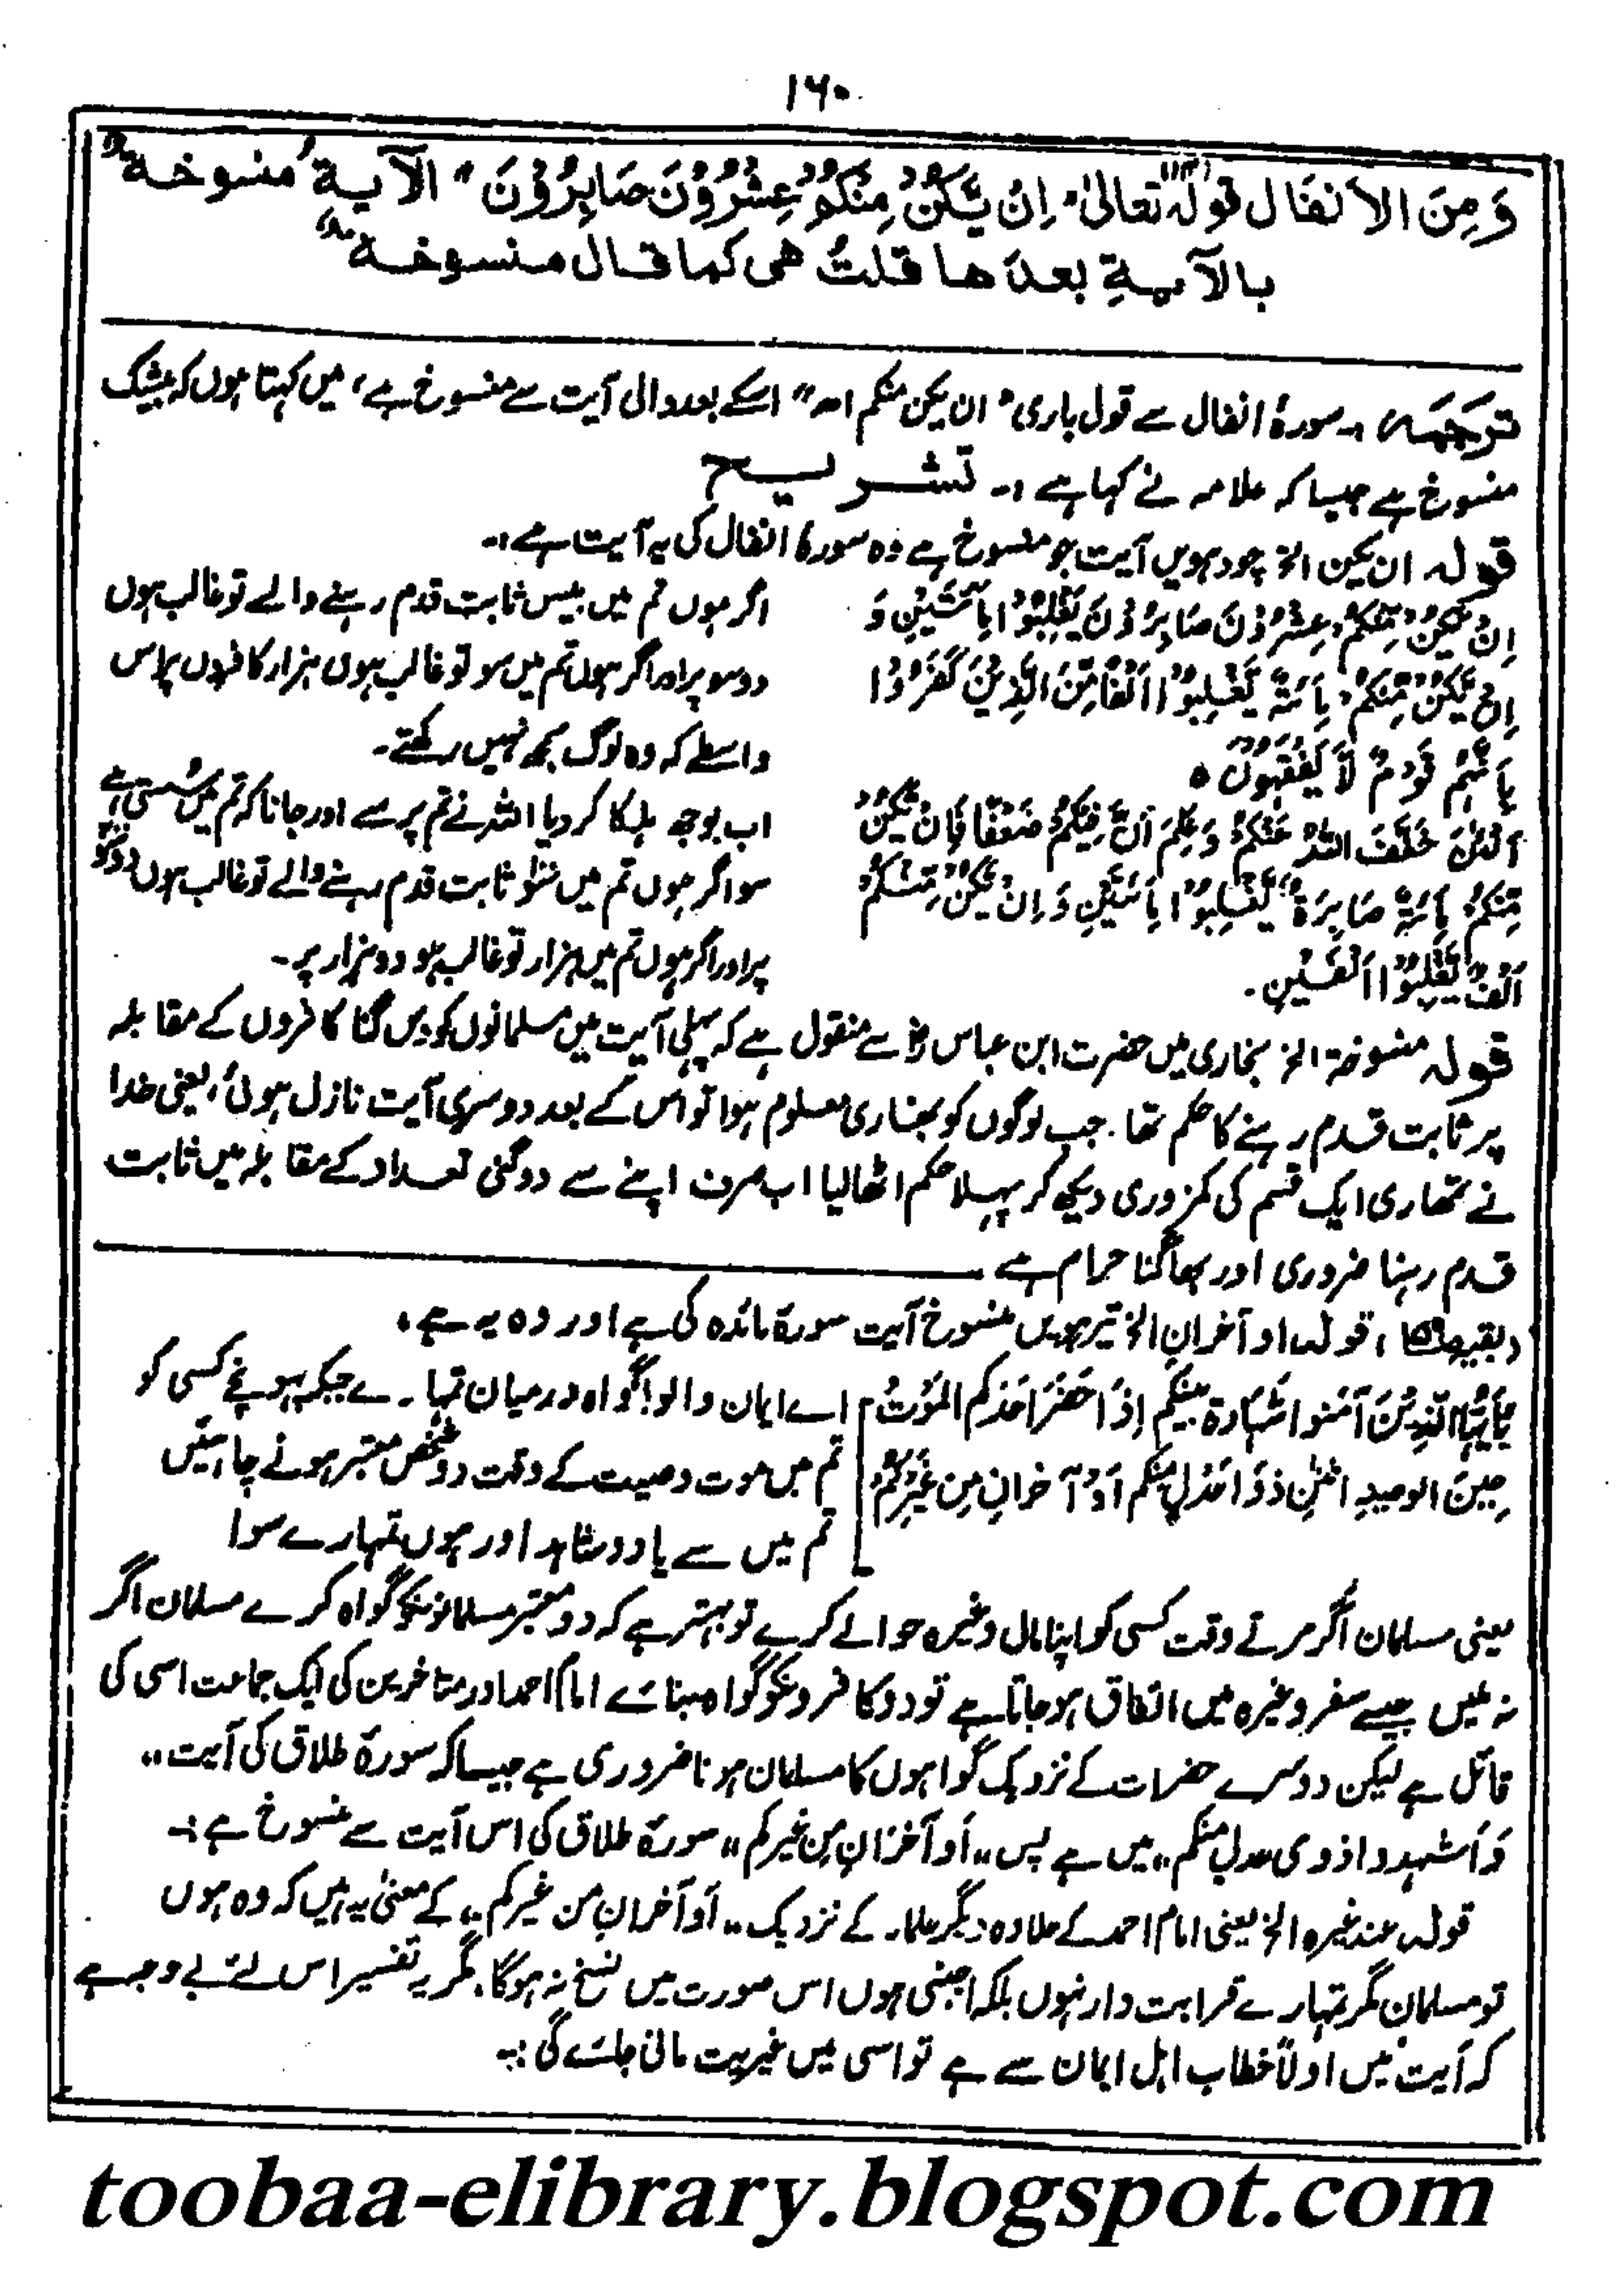 ۱۶۰
وَمِنَ الاَنفَال قولہ تعالیٰ "اِنْ يَّكُنْ مِنْكُمْ عِشْرُوْنَ صَابِرُوْنَ" الآية منسوخة
بالآيةِ بعدَها قلتُ هى كما قال منسوخة
ترجمہ :- سورۂ انفال سے قول باری "ان یکن منکم الخ" اسکے بعد والی آیت سے منسوخ ہے، میں کہتا ہوں کہ بیشک
منسوخ ہے جیسا کہ علامہ نے کہا ہے :- تشریح
قولہ ان یکن الخ چودہویں آیت جو منسوخ ہے وہ سورۂ انفال کی یہ آیت ہے :-
اِنْ يَّكُنْ مِّنْكُمْ عِشْرُوْنَ صَابِرُوْنَ يَغْلِبُوْا مِائَتَيْنِ وَ
اِنْ يَّكُنْ مِّنْكُمْ مِائَةٌ يَّغْلِبُوْا اَلْفًا مِّنَ الَّذِيْنَ كَفَرُوْا
بِاَنَّهُمْ قَوْمٌ لَّا يَفْقَهُوْنَ ه
اَلْئٰنَ خَفَّفَ اللّٰهُ عَنْكُمْ وَعَلِمَ اَنَّ فِيْكُمْ ضَعْفًا فَاِنْ يَّكُنْ
مِّنْكُمْ مِائَةٌ صَابِرَةٌ يَّغْلِبُوْا مِائَتَيْنِ وَاِنْ يَّكُنْ مِّنْكُمْ
اَلْفٌ يَّغْلِبُوْا اَلْفَيْنِ .
اگر ہوں تم میں بیس ثابت قدم رہنے والے تو غالب ہوں
دو سو پر اور اگر ہوں تم میں سو تو غالب ہوں ہزار کافروں پر اس
واسطے کہ وہ لوگ سمجھ نہیں رکھتے۔
اب بوجھ ہلکا کر دیا اللہ نے تم پر سے اور جانا کہ تم میں سُستی ہے
سو اگر ہوں تم میں سَو ثابت قدم رہنے والے تو غالب ہوں دو سَو
پر اور اگر ہوں تم میں ہزار تو غالب ہو دو ہزار پر۔
قولہ منسوخۃ الخ بخاری میں حضرت ابن عباس رضؓ سے منقول ہے کہ پہلی آیت میں مسلمانوں کو دس گنا کافروں کے مقابلہ
پر ثابت قدم رہنے کا حکم تھا۔ جب لوگوں کو بھاری معلوم ہوا تو اس کے بعد دوسری آیت نازل ہوئی، یعنی خدا
نے تمھاری ایک قسم کی کمزوری دیکھ کر پہلا حکم اٹھا لیا اب صرف اپنے سے دوگنی تعداد کے مقابلہ میں ثابت
قدم رہنا ضروری اور بھاگنا حرام ہے
(بقیہ ص۱۵۹) قولہ او آخران الخ تیرہویں منسوخ آیت سورۂ مائدہ کی ہے اور وہ یہ ہے،
يٰاَيُّهَا الَّذِيْنَ آمَنُوا شَهَادَةُ بَيْنِكُم اِذَا حَضَرَ اَحَدَكُم المَوْتُ
حِيْنَ الوصيةِ اثنٰنِ ذَوَا عَدْلٍ مِّنْكُم اَوْ آخرانِ مِن غَيْرِكُمْ
اے ایمان والو! گواہ درمیان تمہارے جبکہ پہونچے کسی کو
تم میں موت وصیت کے وقت دو شخص معتبر ہونے چاہئیں
تم میں سے یا دو شاہد اور ہوں تمہارے سوا
یعنی مسلمان اگر مرتے وقت کسی کو اپنا مال وغیرہ حوالے کرے تو بہتر ہے کہ دو معتبر مسلمانونکو گواہ کرے مسلمان اگر
نہ ملیں جیسے سفر وغیرہ میں اتفاق ہو جاتا ہے تو دو کافرونکو گواہ بنائے امام احمد اور متاخرین کی ایک جماعت اسی کی
قائل ہے لیکن دوسرے حضرات کے نزدیک گواہوں کا مسلمان ہونا ضروری ہے جیسا کہ سورۂ طلاق کی آیت "
وَاَشہدوا ذوی عدلٍ منکم" میں ہے پس "اَو آخرَانِ مِن غیرِکم" سورۂ طلاق کی اس آیت سے منسوخ ہے :-
قولہ عند غیرہ الخ یعنی امام احمد کے علاوہ دیگر علماء کے نزدیک "اَو آخرانِ من غیرکم" کے معنیٰ یہ ہیں کہ وہ ہوں
تو مسلمان مگر تمہارے قرابت دار نہوں بلکہ اجنبی ہوں اس صورت میں نسخ نہ ہوگا۔ مگر یہ تفسیر اس لئے بے وجہ ہے
کہ آیت میں اولاً خطاب اہل ایمان سے ہے تو اسی میں غیریت مانی جائے گی :-
toobaa-elibrary.blogspot.com